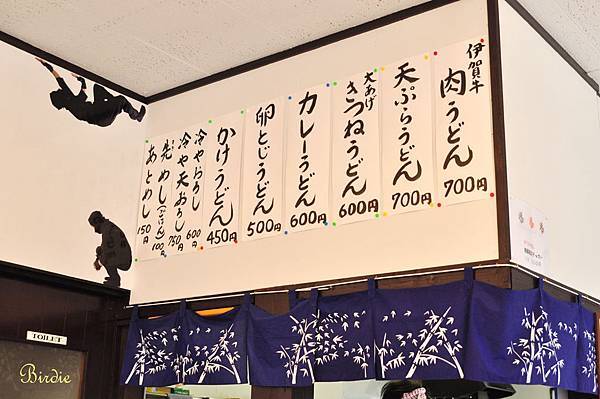 伊賀牛
肉うどん
700円
天ぷらうどん
700円
大あげ
きつねうどん
600円
カレーうどん
600円
卵とじうどん
500円
かけうどん
450円
冷やおろし
600円
冷や天おろし
750円
先めし(ごはん)
100円
あとめし
150円
TOILET
Birdie